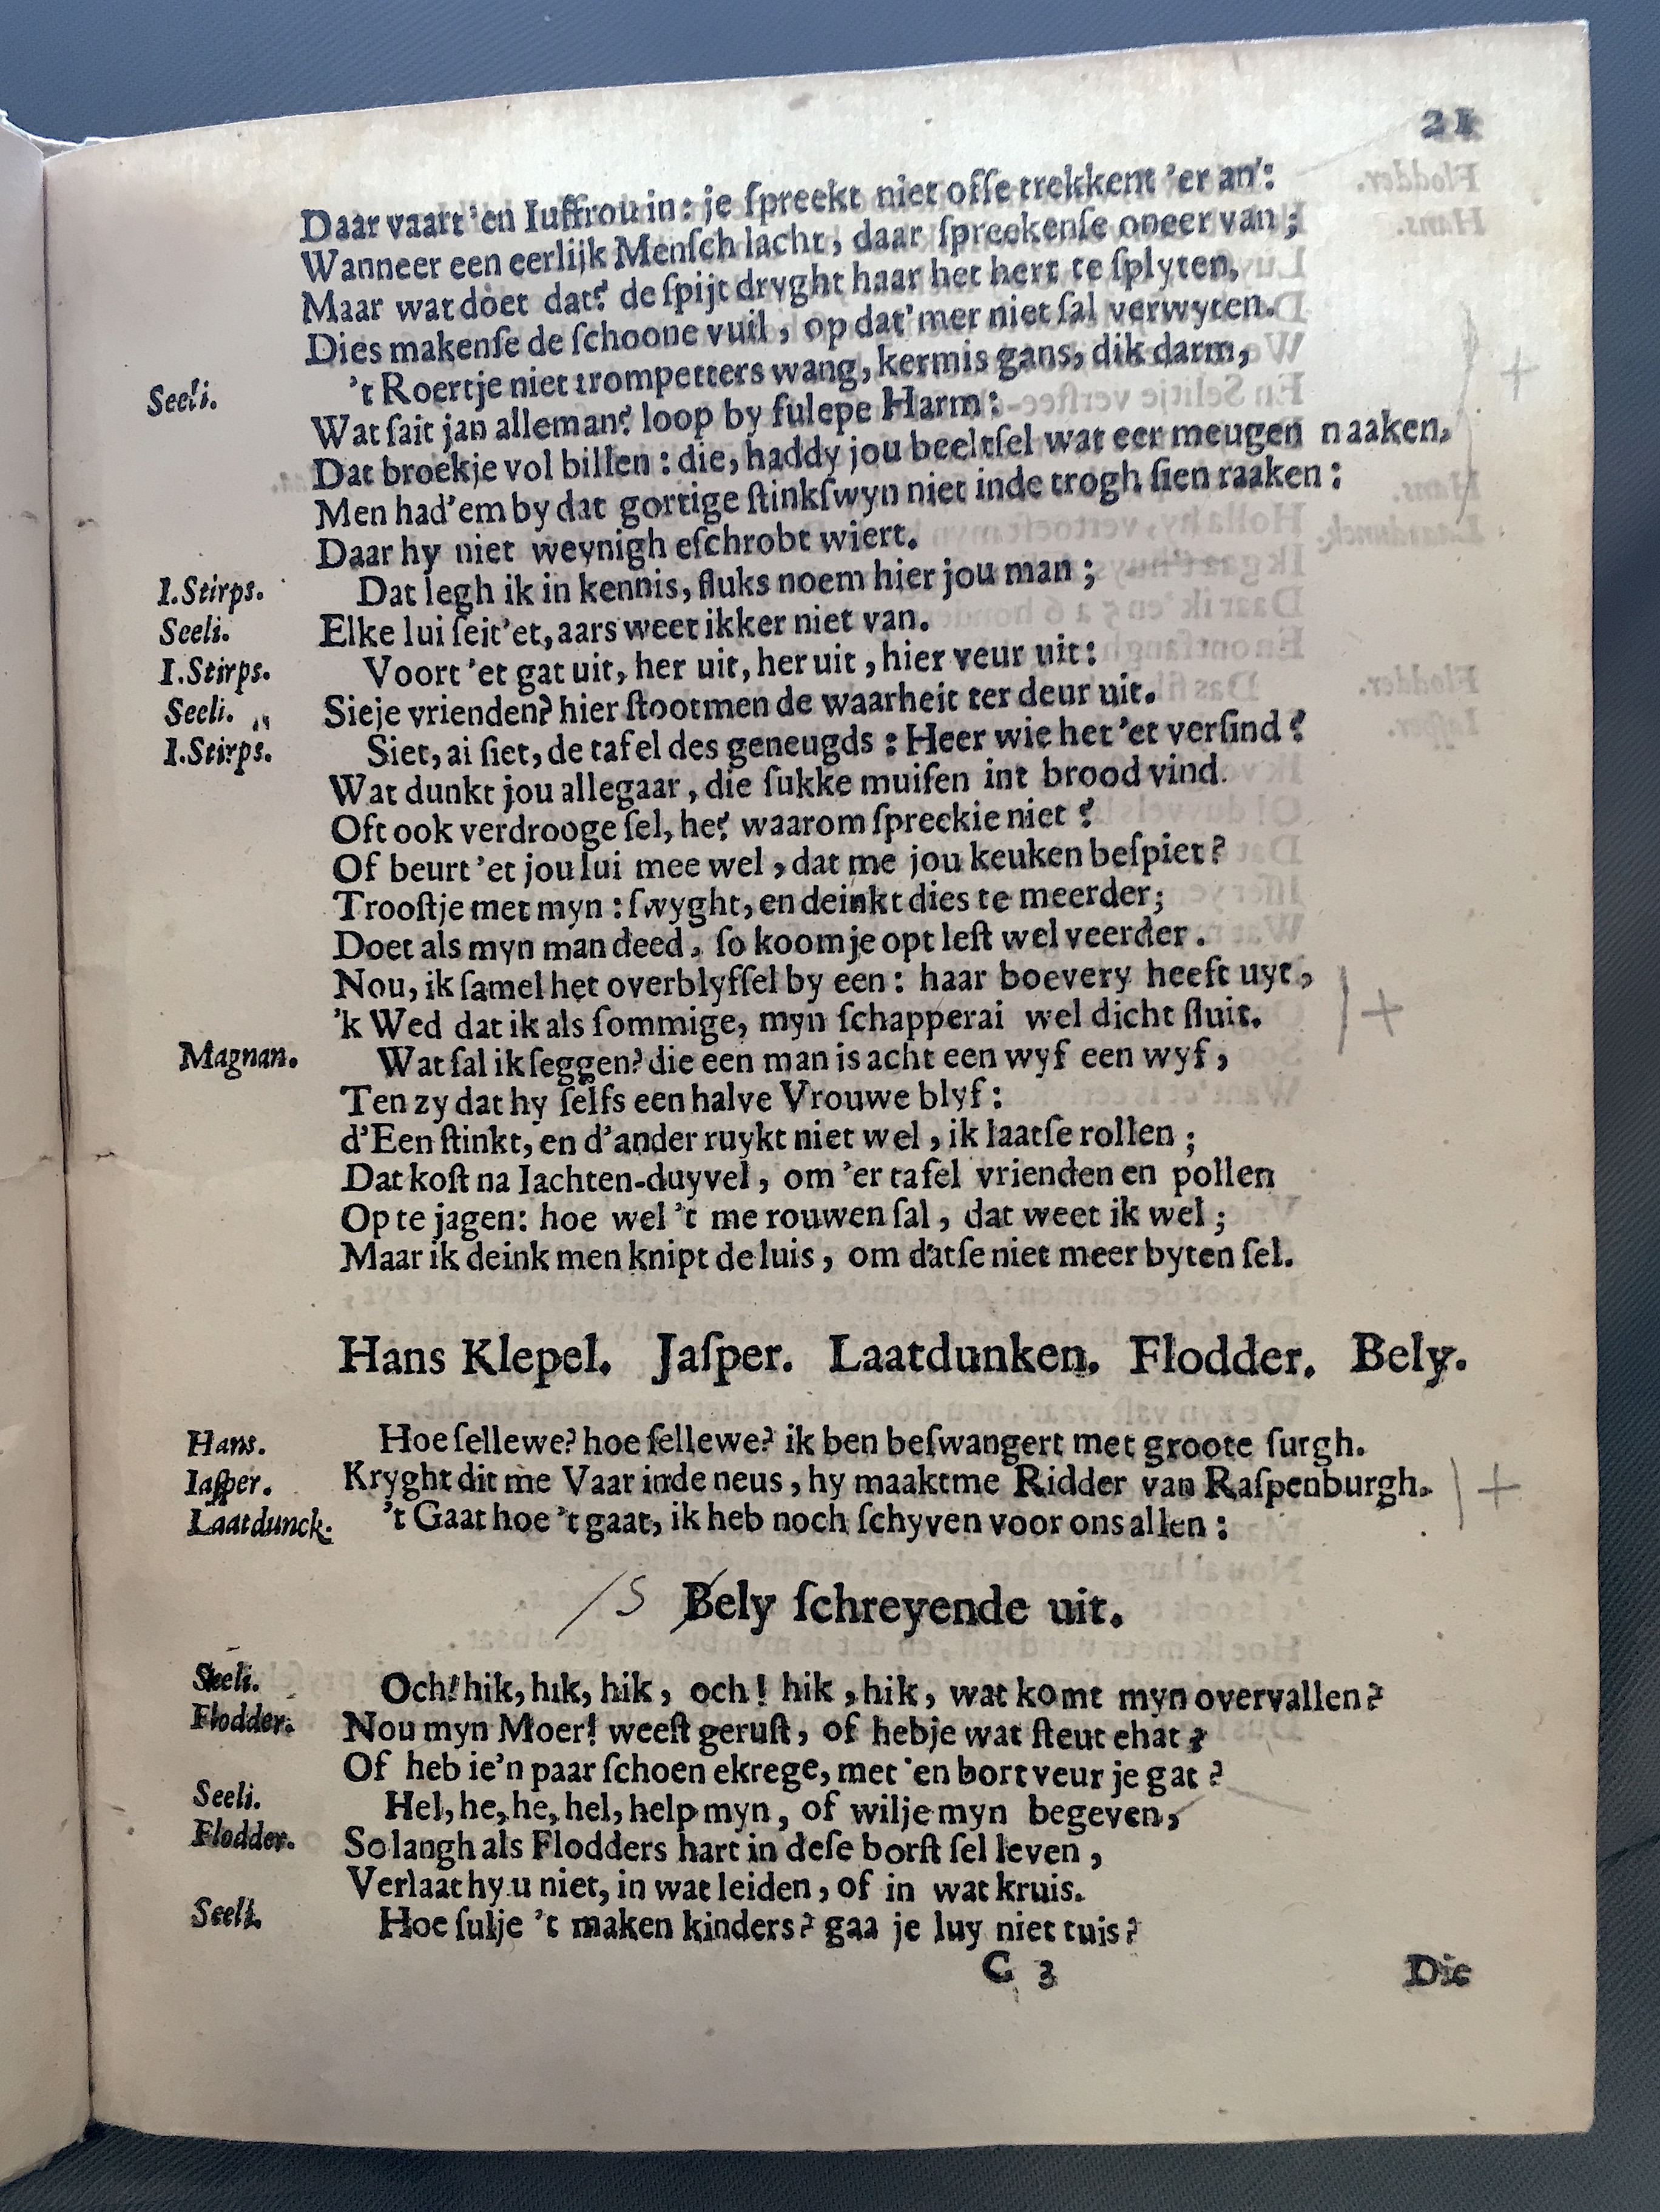 21
Daar vaart 'en Iuffrou in: je ſpreekt niet ofſe trekkent 'er an':
Wanneer een eerlijk Menſch lacht, daar ſpreekenſe oneer van;
Maar wat doet dat? de ſpijt dryght haar het hert te ſplyten,
Dies makenſe de ſchoone vuil, op dat'mer niet ſal verwyten.
Seeli. 't Roertje niet trompetters wang, kermis gans, dik darm,
Wat ſait jan alleman? loop by fulepe Harm:
Dat broekje vol billen: die, haddy jou beeltſel wat eer meugen naaken,
Men had'em by dat gortige ſtinkſwyn niet inde trogh ſien raaken:
Daar hy niet weynigh eſchrobt wiert.
I.Stirps. Dat legh ik in kennis, fluks noem hier jou man;
Seeli. Elke lui ſeit'et, aars weet ikker niet van.
I.Stirps. Voort 'et gat uit, her uit, her uit, hier veur uit:
Seeli. Sieje vrienden? hier ſtootmen de waarheit ter deur uit.
I.Stirps. Siet, ai ſiet, de tafel des geneugds: Heer wie het 'et verſind?
Wat dunkt jou allegaar, die ſukke muiſen int brood vind.
Oft ook verdrooge ſel, he? waarom ſpreekie niet?
Of beurt 'et jou lui mee wel, dat me jou keuken beſpiet?
Trooſtje met myn: ſwyght, en deinkt dies te meerder;
Doet als myn man deed, ſo koomje opt leſt wel veerder.
Nou, ik ſamel het overblyfſel by een: haar boevery heeft uyt,
'k Wed dat ik als ſommige, myn ſchapperai wel dicht ſluit.
Magnan. Wat ſal ik ſeggen? die een man is acht een wyf een wyf,
Ten zy dat hy ſelfs een halve Vrouwe blyf:
d'Een ſtinkt, en d'ander ruykt niet wel, ik laatſe rollen;
Dat koſt na Iachten-duyvel, om 'er tafel vrienden en pollen
Op te jagen: hoe wel 't me rouwen ſal, dat weet ik wel;
Maar ik deink men knipt de luis, om datſe niet meer byten ſel.
Hans Klepel. Jaſper. Laatdunken. Flodder. Bely.
Hans. Hoe ſellewe? hoe ſellewe? ik ben beſwangert met groote ſurgh.
Iaſper. Kryght dit me Vaar inde neus, hy maakt me Ridder van Raſpenburgh.
Laatdunck. 't Gaat hoe 't gaat, ik heb noch ſchyven voor ons allen:
/S Bely ſchreyende uit.
Seeli. Och! hik, hik, hik, och! hik, hik, wat komt myn overvallen?
Flodder. Nou myn Moer! weeſt geruſt, of hebje wat ſteut ehat?
Of heb ie'n paar ſchoen ekrege, met 'en bort veur je gat?
Seeli. Hel, he, he, hel, help myn, of wilje myn begeven,
Flodder. So langh als Flodders hart in deſe borſt ſel leven,
Verlaat hy u niet, in wat leiden, of in wat kruis.
Seeli. Hoe ſulje 't maken kinders? gaa je luy niet tuis?
C 3
Die